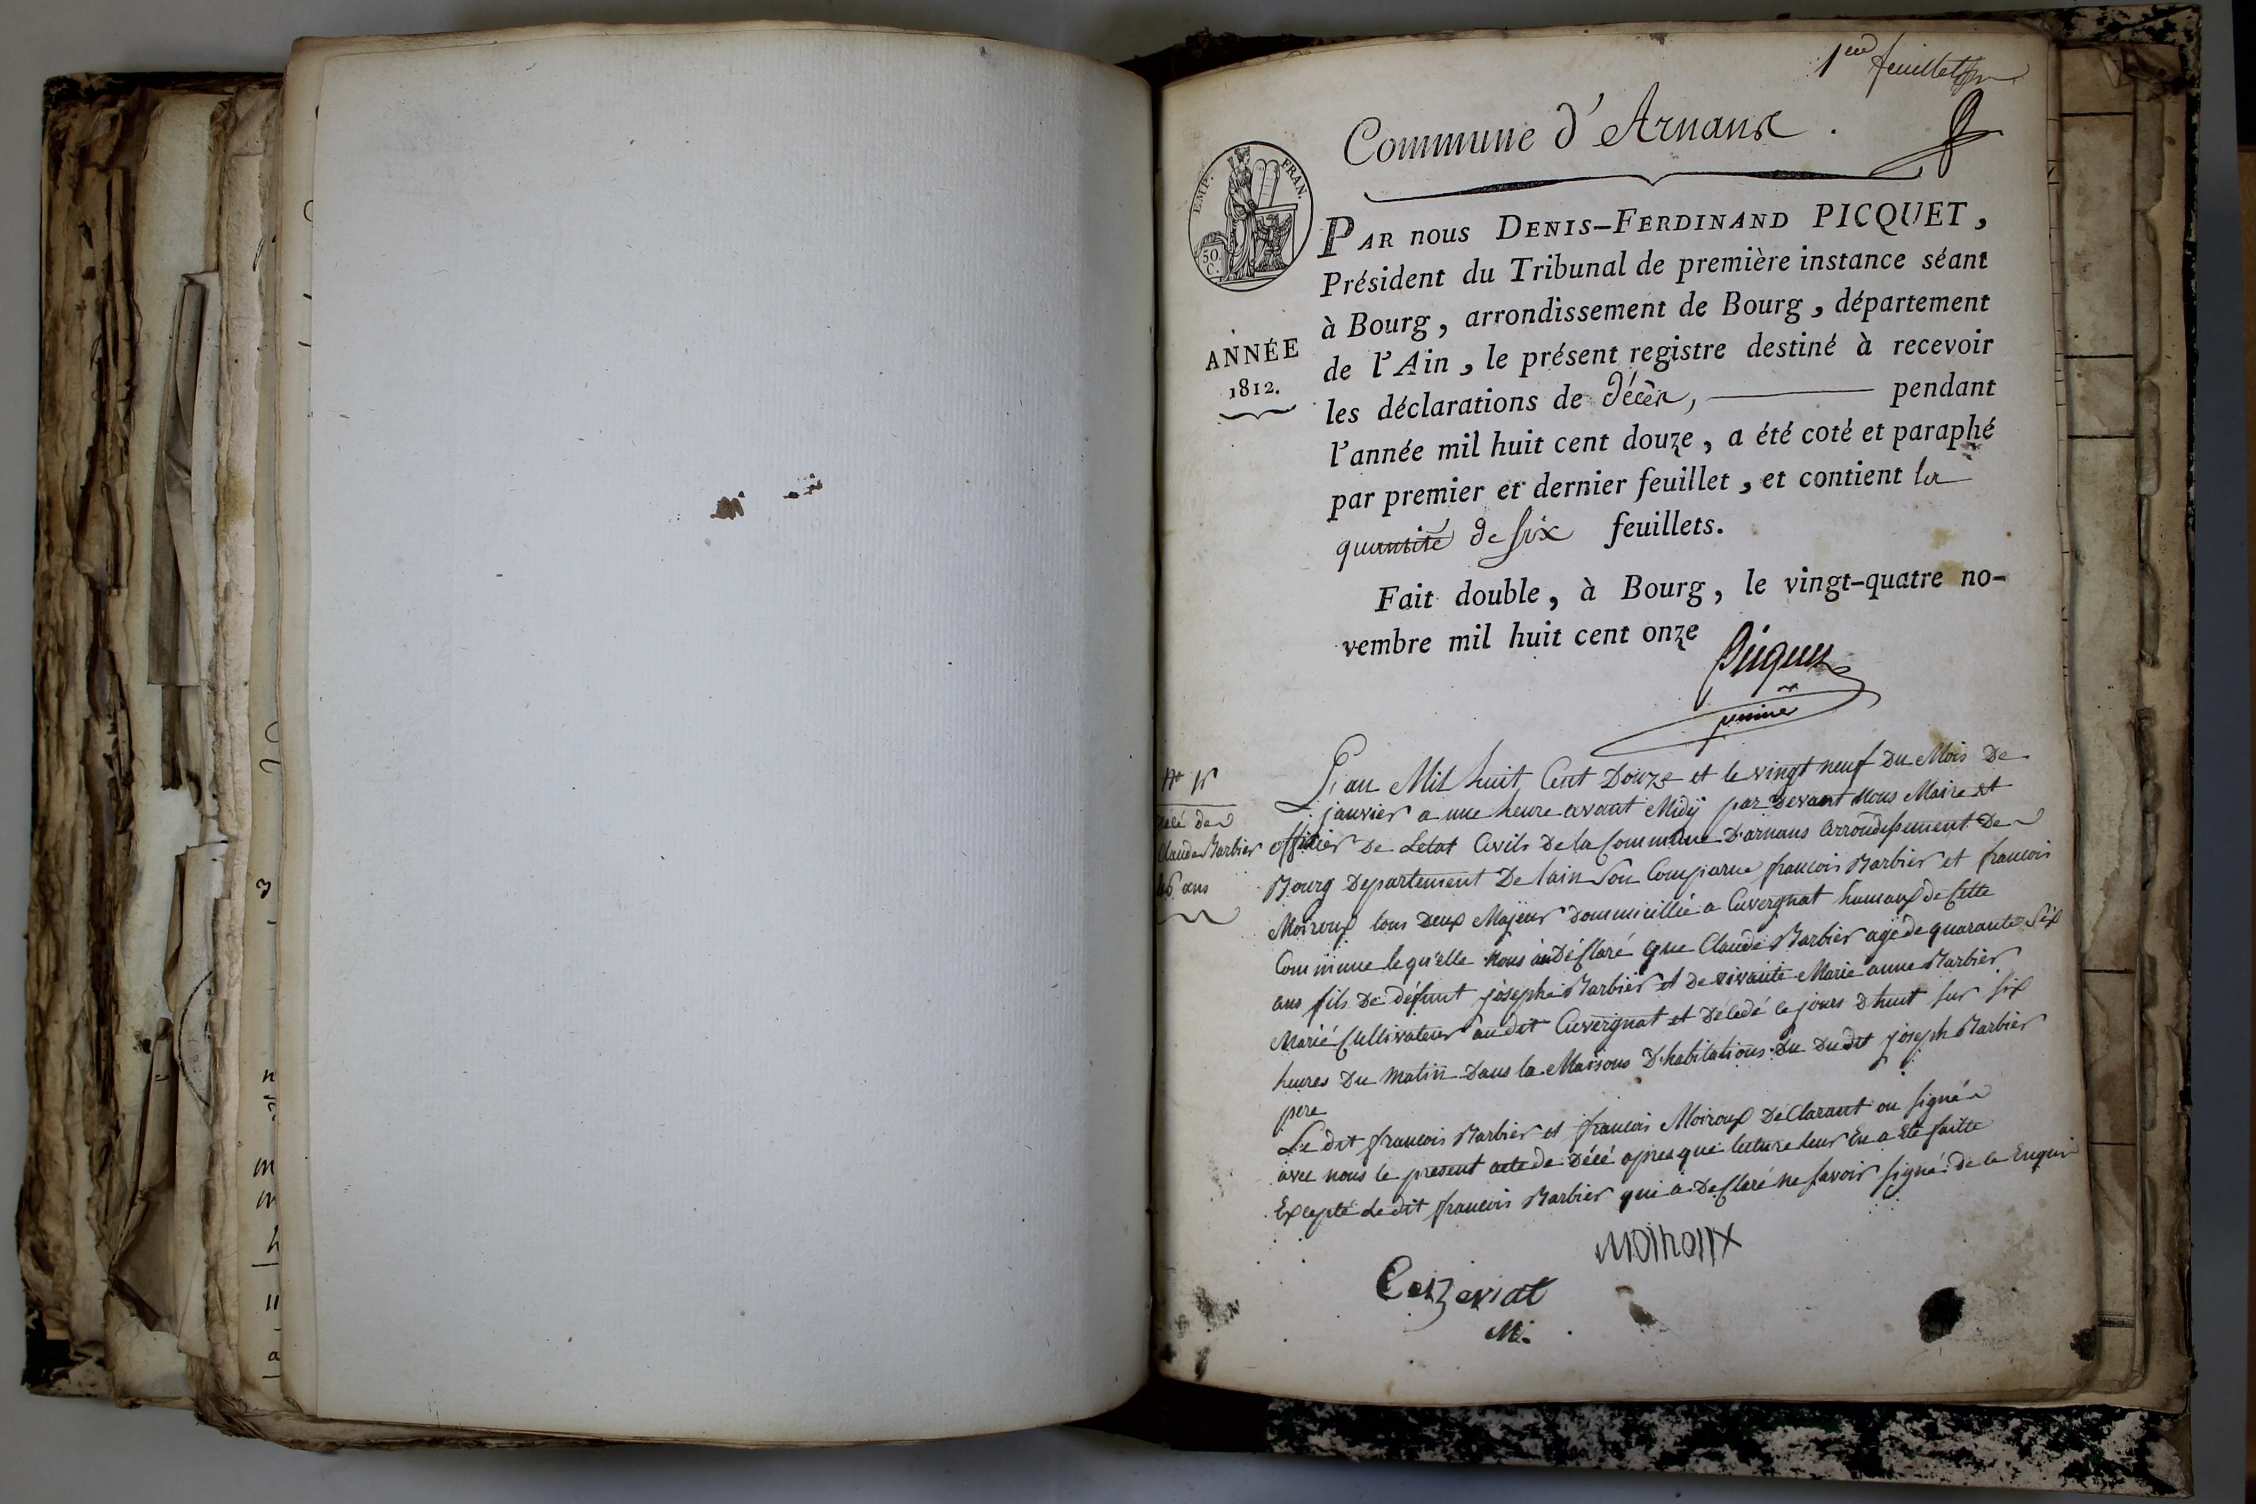 1er feuillet
Commune d'Arnans.
EMP. FRAN.
50.
C.
ANNÉE
1812.
PAR nous DENIS-FERDINAND PICQUET,
Président du Tribunal de première instance séant
à Bourg, arrondissement de Bourg, département
de l'Ain, le présent registre destiné à recevoir
les déclarations de décès, pendant
l'année mil huit cent douze, a été coté et paraphé
par premier et dernier feuillet, et contient la
quantité de six feuillets.
Fait double, à Bourg, le vingt-quatre no-
vembre mil huit cent onze
Picquet
Claude Barbier
46 ans
L'an Mil huit Cent Douze et le vingt neuf Du Mois De
janvier a une heure avant Midÿ par Devant Nous Maire et
officier De Letat Civils De la Commune D'arnans arrondissement De
Bourg Departement De lain Son Comparue francois Barbier et francois
Moiroux tous Deux Majeur Dommicillié a Cuvergnat hameaux de Cette
Commune lequ'elle Nous on Déclaré que Claude Barbier agé de quarante Six
ans fils De défunt joseph Barbier et De vivante Marie anne Barbier
Marié Cultivateur au dit Cuvergnat et Décédé ce jours D'huit sur six
heures Du Matin Dans la Maisons D'habitations Du Dudit joseph Barbier
pere
Le dit francois Barbier et francois Moiroux Déclarant on signé
avec nous le present acte de Décé apres que lecture leur En a Eté faitte
Excepté Le dit francois Barbier qui a Declaré ne savoir signé de le Enquis
Moiroux
Cerzeriat
Me.